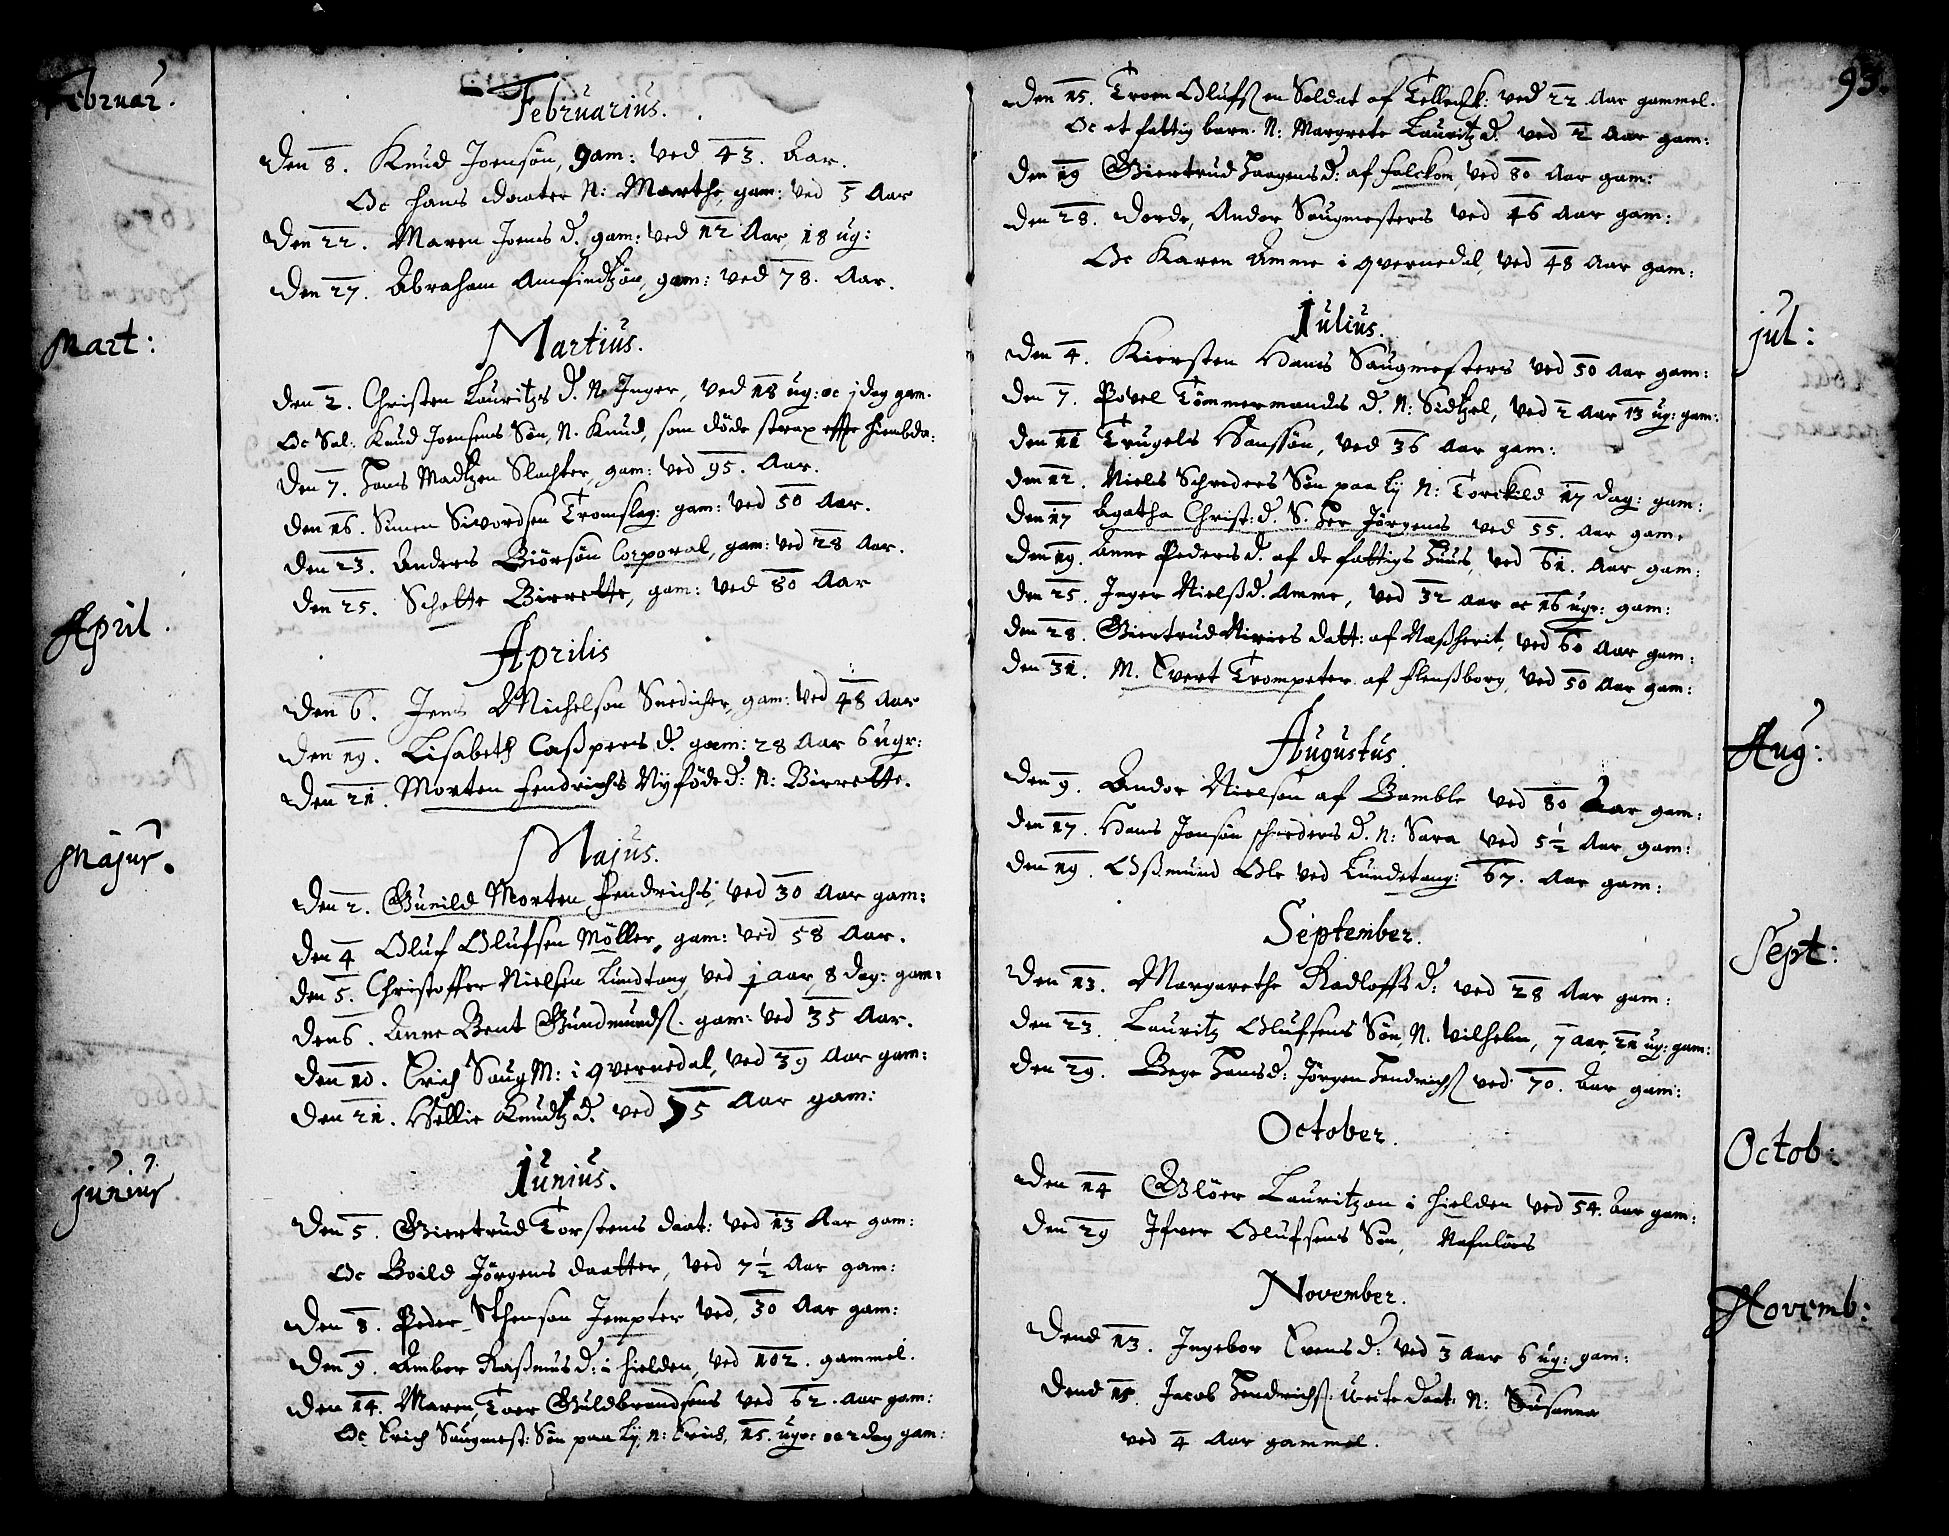 Februar.
Februarius.
Den 8. Knud Joensøn, gam: ved 43. Aar.
Oc hans daater N: Marthe, gam: ved 5 Aar
Den 22. Maren Joens d. gam: ved 12 Aar, 18 ug:
Den 27. Abraham Amfindtzøn, gam: ved 78. Aar.
Mart:
Martius.
Den 2. Christen Lauritzs d. N. Inger, ved 18 ug: oc j dag gam.
Oc Sal: Knud Joensens Søn, N. Knud, som døde strax effter hiembda:
Den 7. Hans Madtzen Slachter, gam: ved 95. Aar.
Den 16. Simen Sivordsen Tromslag: gam: ved 50 Aar.
Den 23. Anders Biørsøn Corporal, gam: ved 28 Aar.
Den 25. Scholte Birrette, gam: ved 80 Aar
April.
Aprilis
Den 6. Jens Michelson Snedicher, gam: ved 48 Aar
Den 19. Lisabeth Caßpers d. gam: 28 Aar 6 ugr:
Den 21. Morten Fendrichs Nyføde d: N: Birrette.
Majus.
Majus.
Den 2. Gunild Morten Fendrichs, ved 30 Aar gam:
Den 4 Oluf Olufsen Møller, gam: ved 58 Aar.
Den 5. Christoffer Nielsen Lundtang ved j aar, 8 dag: gam:
Den 6. Anne Bent Gundmunds. gam: ved 35 Aar.
Den 10. Erich Saug M: i Qvernedal, ved 39 Aar gam:
Den 21. Hellie Knudtz d. ved 75 Aar gam:
junius
Iunius.
Den 5. Giertrud Torstens daat: ved 13 Aar gam:
Oc Boild Jørgens daatter, ved 7½ Aar gam:
Den 8. Peder Sthenson Jempter ved, 30 Aar gam:
Den 9. Amber Raßmus d: i hielden, ved 102. gammel.
Den 14. Maren, Toer Guldbrandsens ved 62. Aar gam:
Oc Erich Saugmest: Søn paa Ly, N: Eriis, 15. ugr: oc 2 dag gam:
93.
Den 15. Troen Olufs en Soldat af Tellemk: ved 22 Aar gammel.
Oc et fattig barn. N: Margrete Lauritz d. ved 2 Aar gam:
Den 19 Giertrud Haagens d: af Falckom, ved 80 Aar gam:
Den 28. Dorde, Andor Saugmesters ved 46 Aar gam:
Oc Karen Amme i Qvernedal, ved 48 Aar gam:
jul:
Iulius.
Den 4. Kiersten Hans Saugmesters ved 50 Aar gam:
Den 7. Povel Tømmermands d. N: Sidtzel, ved 2 Aar 13 ug: gam:
Den 11 Trugels Hanssøn, ved 36 Aar gam:
Den 12. Niels Schreders Søn paa Ly N: Torckild 17 dag: gam:
Den 17 Agatha Christ: d. S. Her Jørgens ved 55. Aar gam:
Den 19. Anne Peders d. af de fattigs Huus, ved 61. Aar gam:
Den 25. Inger Nielß d. Amme, ved 32 Aar oc 16 ugr: gam:
Den 28. Giertrud Niries datt: af Naßherit, ved 60 Aar gam:
Den 31. M. Evert Trompeter af Flenßborg, ved 50 Aar gam:
Aug:
Augustus.
Den 9. Andor Nielsøn af Bamble ved 80 Aar gam:
Den 17. Hans Jonsøn schreders d. N: Sara ved 5½ Aar gam:
Den 19. Oßmund Ole ved Lundetang: 67. Aar gam:
Sept:
September.
Den 13. Margarethe Radloffs d: ved 28 Aar gam:
Den 23. Lauritz Olufsens Søn, N. Vilhelm, 7 aar, 21 ug: gam:
Den 29. Bege Hans d: Jørgen Hendrichs ved 70. Aar gam:
Octob:
October.
Den 14 Gløer Lauritzon i hielden ved 54. Aar gam:
Den 29 Ifver Olufsens Søn, Nafnløes
Novemb:
November.
Dend 13. Ingebor Evens d: ved 3 Aar 6 ug: gam:
Dend 15. Jacob Hendrichs: Uecte Daat: N: Susanna
ved 4 Aar gammel.